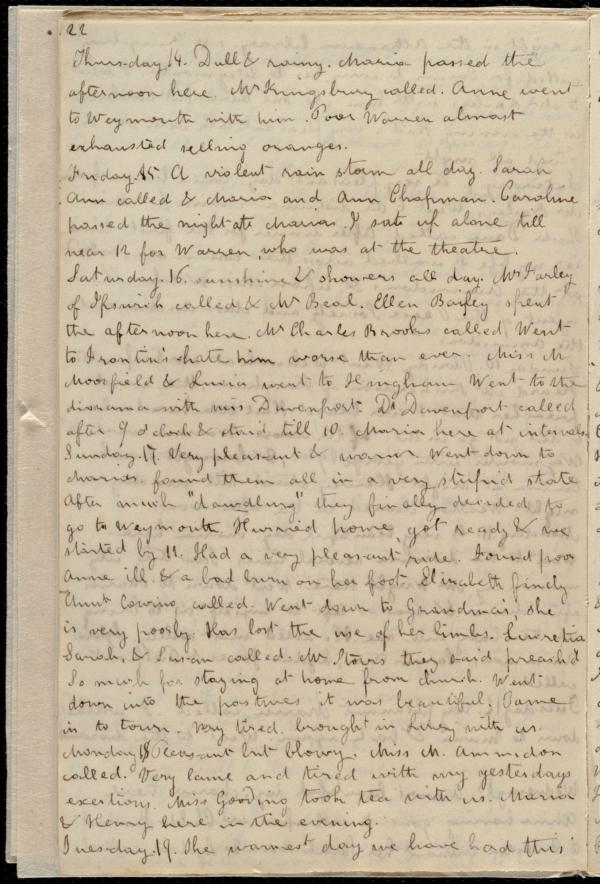 22
Thursday 14. Dull & rainy. Maria passed the
afternoon here. Mr Kingsbury called. Anne went
to Weymouth with him. Poor Warren almost
exhausted selling oranges.
Friday 15 A violent rain storm all day. Sarah
Ann called & Maria and Ann Chapman. Caroline
passed the night at Marias. I sate up alone till
near 12 for Warren, who was at the theatre.
Saturday. 16. sunshine & showers all day. Mr Farley
of Ipswich called & Mr Beal. Ellen Bailey spent
the afternoon here. Mr Charles Brooks called. Went
to Frontin's hate him worse than ever. Miss M
& went to Hingham. Went to the
diorama with miss Davenport. Dr Davenport called
after 9 o'clock & staid till 10. Maria here at intervals
Sunday. 17. Very pleasant & warm. Went down to
Marias. found them all in a very stupid state
After much "dawdling" they finally decided to
go to Weymouth. Hurried home, got ready & we
started by 11. Had a very pleasant ride. Found poor
Anne ill & a bad burn on her foot. Elizabeth
Aunt Cowing called. Went down to Grandma's, she
is very poorly. Has lost the use of her limbs. Lucretia
Sarah, & Susan called. Mr they said preach'd
So much for staying at home from church. Went
down into the pastures it was beautiful. Came
in to town. Very tired. brought in Lucy with us.
Monday 18 Pleasant but blowy. Miss M. Ammidon
called. Very lame and tired with my yesterdays
exertions. Miss Gooding took tea with us. Maria
& Henry here in the evening.
Tuesday. 19. The warmest day we have had this